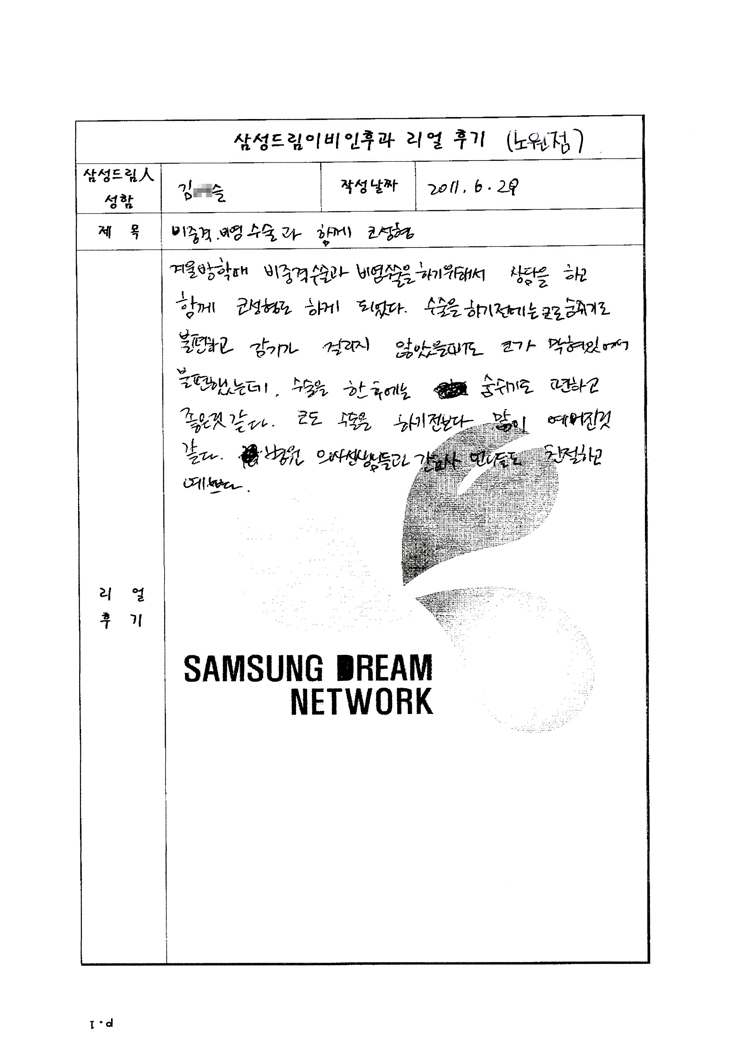 삼성드림이비인후과 리얼 후기 (노원점)
삼성드림人 성함
김 슬
작성날짜
2011. 6. 29
제 목
비중격.비염 수술과 함께 코성형
겨울방학때 비중격수술과 비염수술을 하기위해서 상담을 하고
함께 코성형도 하게 되었다. 수술을 하기전에는 코로 숨쉬기도
불편하고 감기가 걸리지 않았을때도 코가 막혀있어서
불편했는데, 수술을 한 후에는 숨쉬기도 편하고
좋은것 같다. 코도 수술을 하기전보다 많이 예뻐진것
같다. 병원 의사선생님들과 간호사 언니들도 친절하고
예쁘다.
리 얼
후 기
SAMSUNG DREAM
NETWORK
P. 1